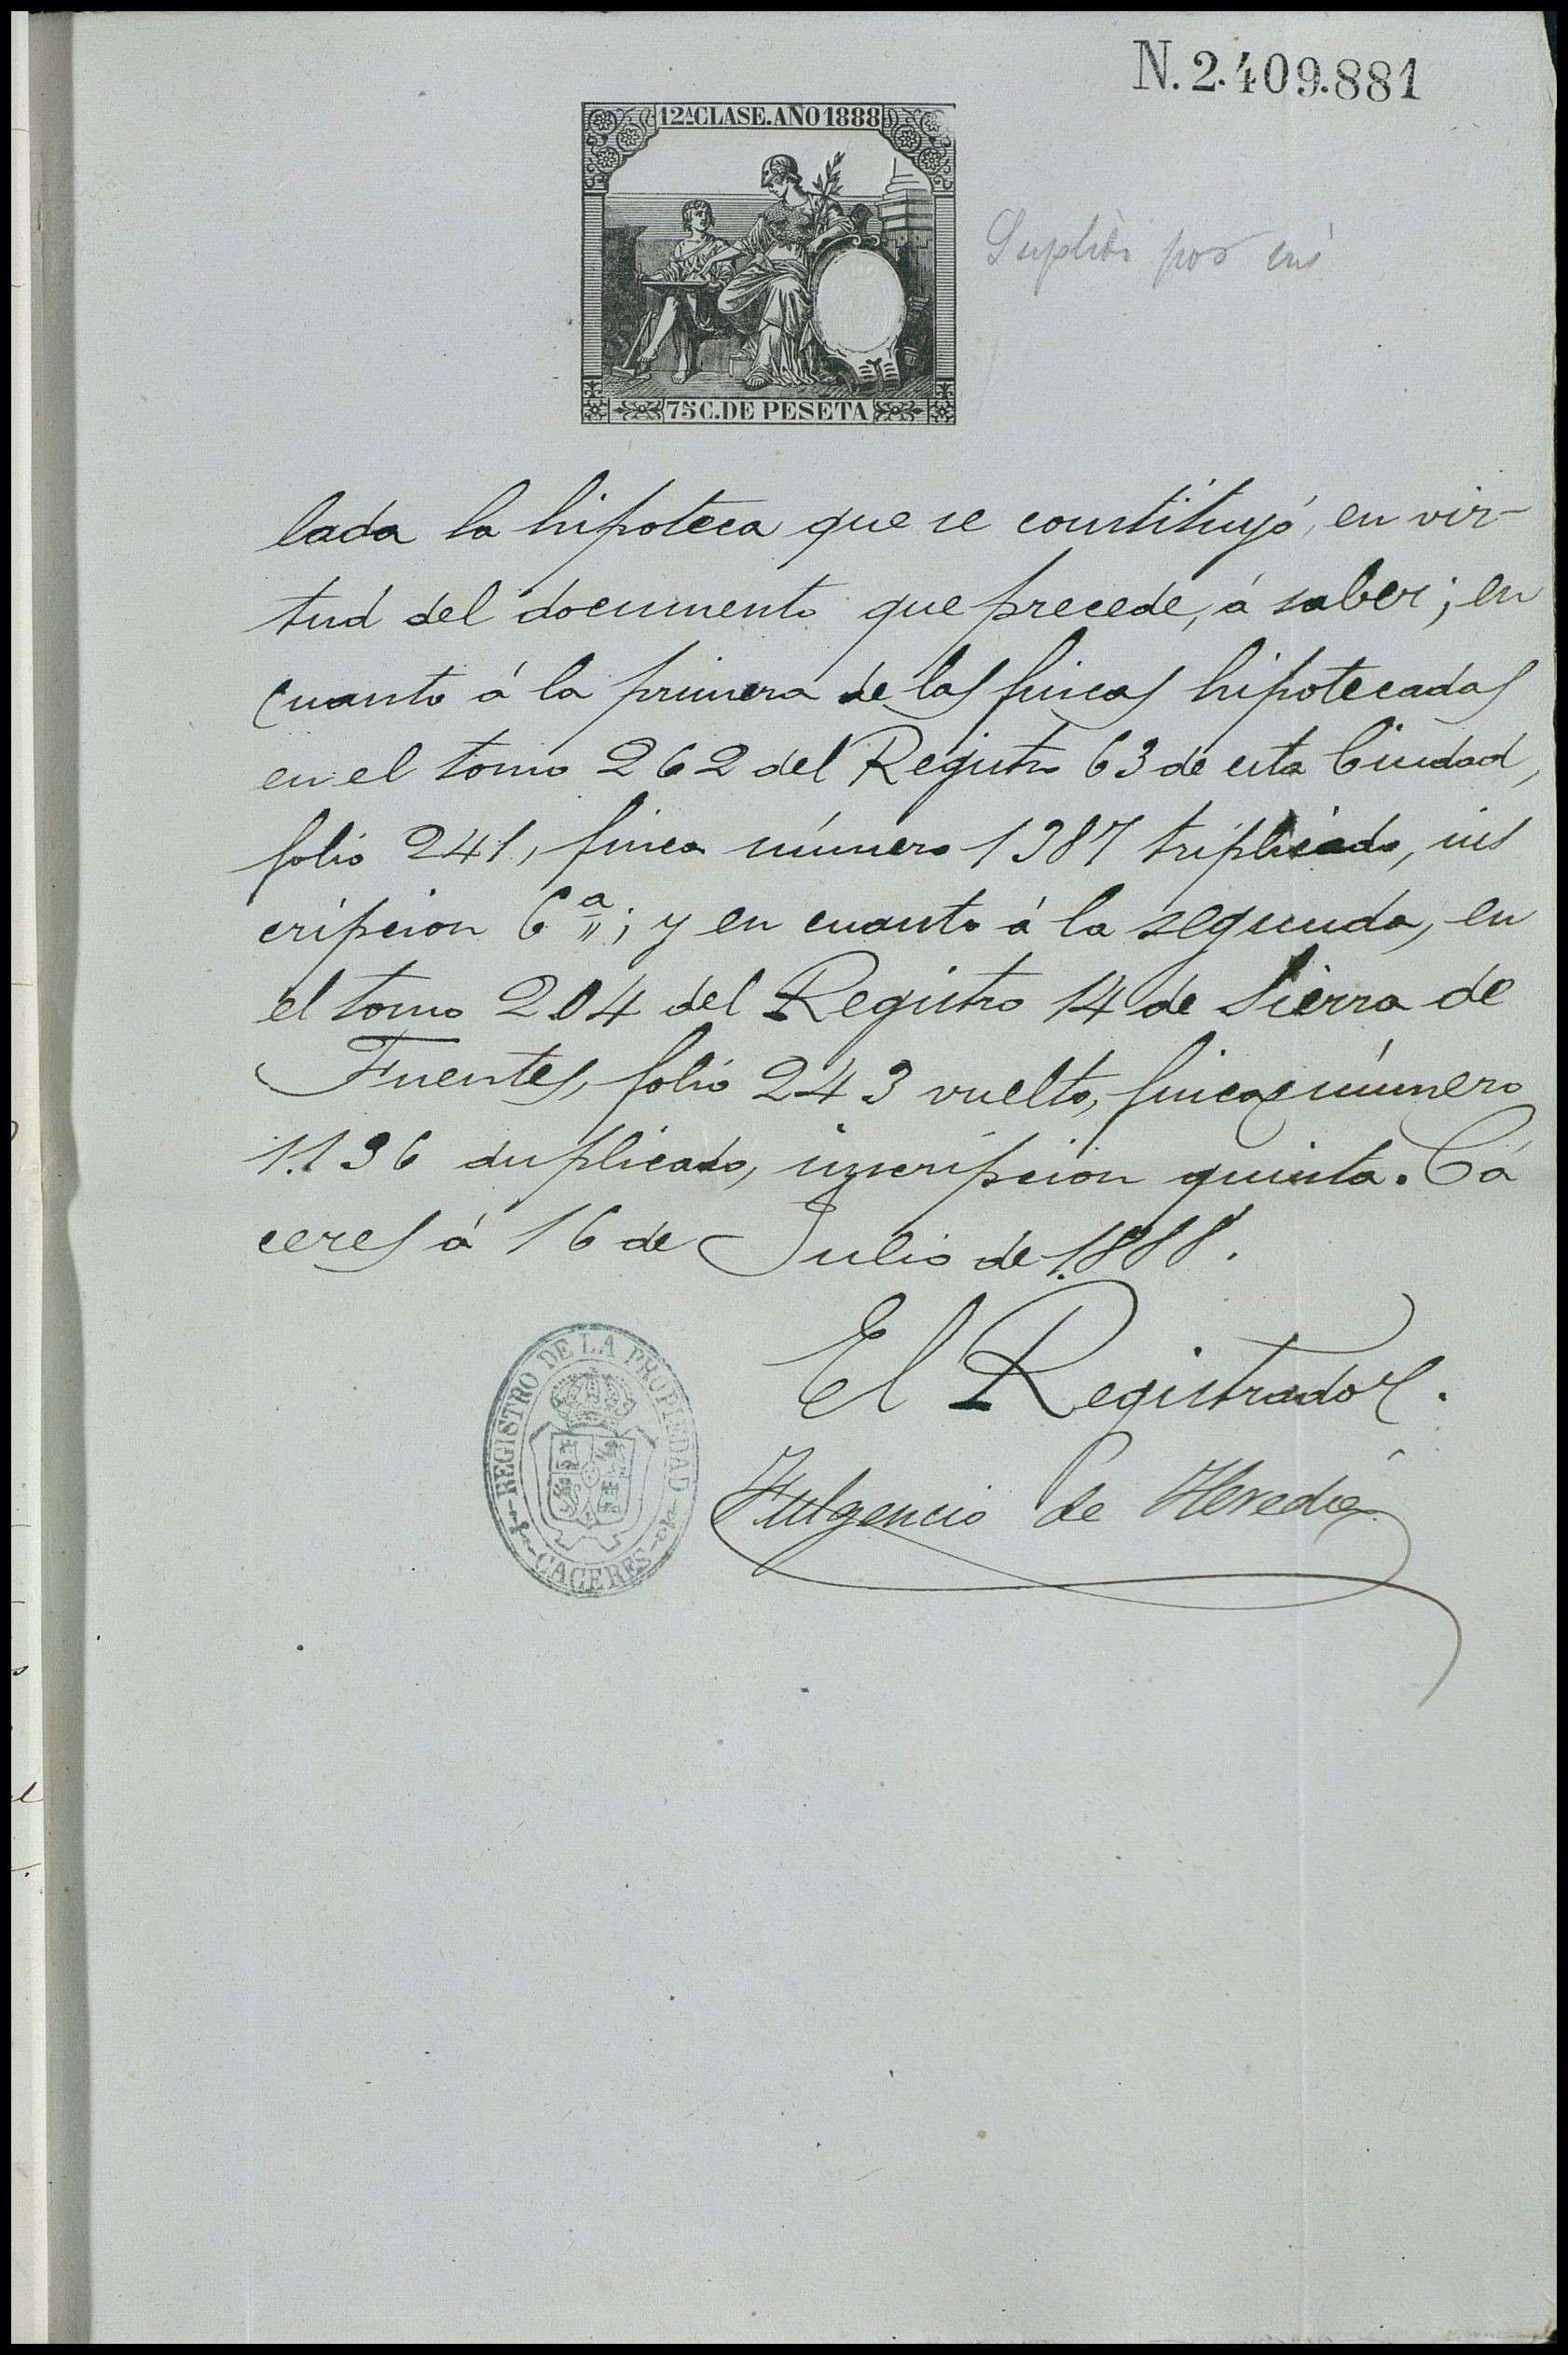 N. 2.409.881
12ª CLASE. AÑO 1888
75 C. DE PESETA
por mí
lada la hipoteca que se constituyó, en vir-
tud del documento que precede, á saber; en
cuanto á la primera de las fincas hipotecadas
en el tomo 262 del Registro 63 de esta Ciudad,
folio 241, finca número 1387 triplicado, ins
cripcion 6ª; y en cuanto á la segunda, en
el tomo 204 del Registro 14 de Sierra de
Fuentes, folio 243 vuelto, finca número
1.136 duplicado, inscripcion quinta. Cá
ceres á 16 de Julio de 1.888.
El Registrador.
Fulgencio de Heredia
REGISTRO DE LA PROPIEDAD
CACERES